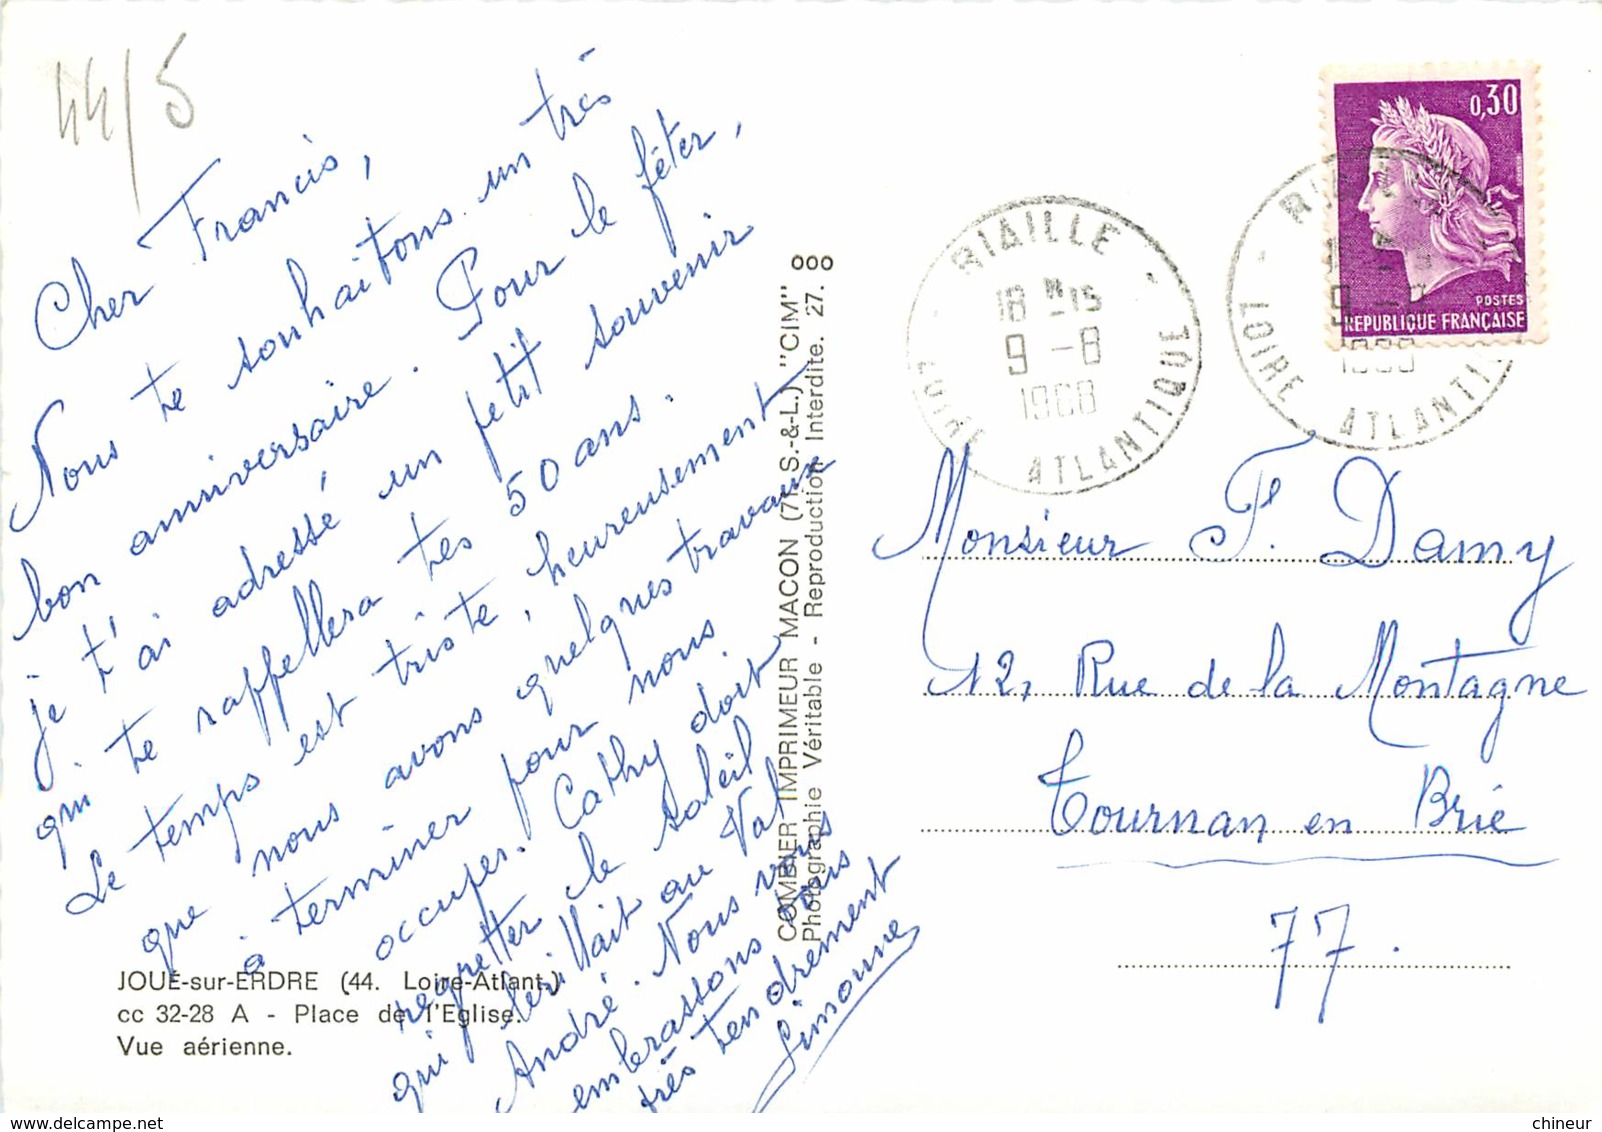 44/5
Cher Francis,
Nous te souhaitons un très
bon anniversaire. Pour le fêter,
je t'ai adressé un petit souvenir
qui te rappellera tes 50 ans.
Le temps est triste, heureusement
que nous avons quelques travaux
à terminer pour nous
occuper. Cathy doit
regretter le soleil
qui brillait au Val
André. Nous vous
embrassons tous
très tendrement
Simonne
JOUÉ-sur-ERDRE (44. Loire-Atlant.)
cc 32-28 A - Place de l'Eglise.
Vue aérienne.
COMBIER IMPRIMEUR MACON (71 S.-&-L.) "CIM"
Photographie Véritable - Reproduction Interdite. 27.
000
RIAILLE
18 H-15
9 -8
1968
LOIRE ATLANTIQUE
0,30
POSTES
REPUBLIQUE FRANÇAISE
9 -
LOIRE ATLANTI
Monsieur F. Damy
12, Rue de la Montagne
Tournan en Brie
77.
delcampe.net
chineur